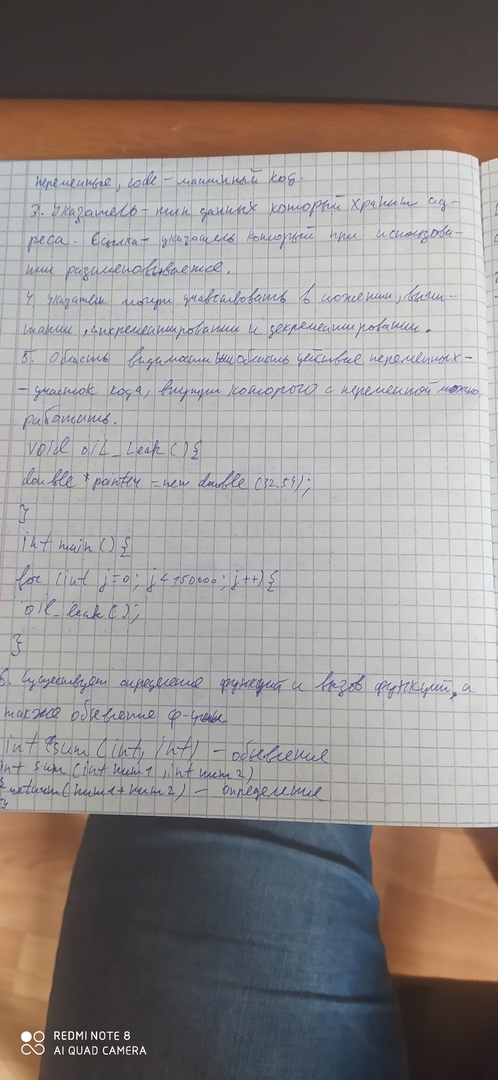 переменные, code - машинный код.
3. Указатель - тип данных который хранит ад-
реса. Ссылка - указатель который при использова-
нии разименовывается.
4. указатели могут учавсвовать в ложении, вычи-
тании, инкрементировании и декрементировании.
5. Область видимости или область действие переменных -
- участок кода, внутри которого с переменной можно
работать.
void oil_leak(){
double *pointry = new double (32.54);
}
int main(){
for (int j=0; j<150000; j++){
oil_leak();
}
6. Существует определение функций и вызов функций, а
также обьевление ф-
int sum (int, int) - обьевления
int sum (int num1, int num2)
{ return (num1+num2) - определение
}
REDMI NOTE 8
AI QUAD CAMERA